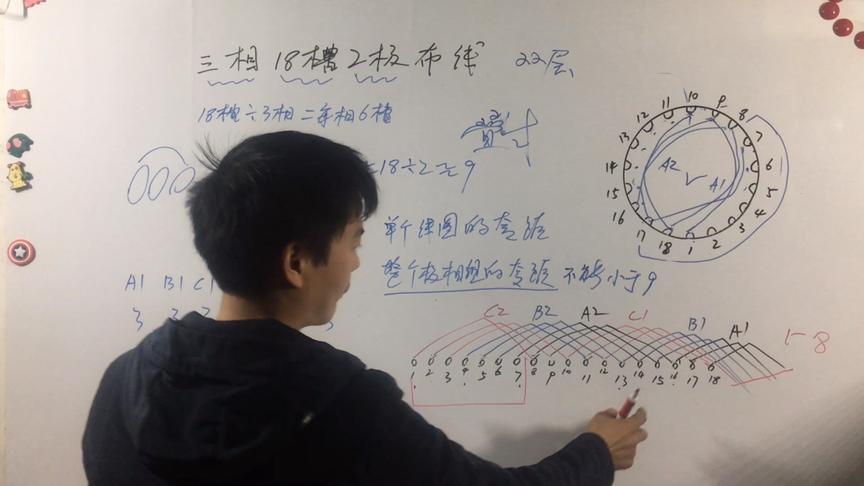 三相18槽2极布线 双层
18槽÷3相=每相6槽
=18÷2=9
单个线圈的跨距
整个极相组的跨距 不能小于9
A1 B1 C1
3
10 9 8 7 6 5 4 3 2 1 18 17 16 15 14 13 12 11
A2 A1
C2 B2 A2 C1 B1 A1
1-8
1 2 3 4 5 6 7 8 9 10 11 12 13 14 15 16 17 18